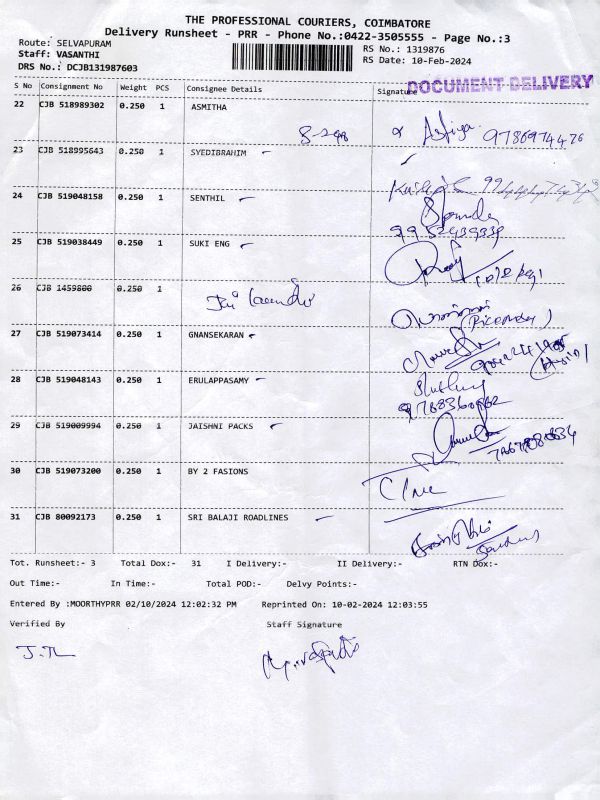 THE PROFESSIONAL COURIERS, COIMBATORE
Delivery Runsheet - PRR - Phone No.:0422-3505555 - Page No.:3
Route: SELVAPURAM
RS No.: 1319876
Staff: VASANTHI
RS Date: 10-Feb-2024
DRS No.: DCJB131987603
DOCUMENT DELIVERY
S No Consignment No Weight PCS Consignee Details Signature
22 CJB 518989302 0.250 1 ASMITHA
9786974426
23 CJB 518995643 0.250 1 SYEDIBRAHIM
24 CJB 519048158 0.250 1 SENTHIL
9952439939
25 CJB 519038449 0.250 1 SUKI ENG
26 CJB 1459800 0.250 1
27 CJB 519073414 0.250 1 GNANSEKARAN
28 CJB 519048143 0.250 1 ERULAPPASAMY
9788360962
29 CJB 519009994 0.250 1 JAISHNI PACKS
30 CJB 519073200 0.250 1 BY 2 FASIONS
31 CJB 80092173 0.250 1 SRI BALAJI ROADLINES
Tot. Runsheet:- 3 Total Dox:- 31 I Delivery:- II Delivery:- RTN Dox:-
Out Time:- In Time:- Total POD:- Delvy Points:-
Entered By :MOORTHYPRR 02/10/2024 12:02:32 PM Reprinted On: 10-02-2024 12:03:55
Verified By Staff Signature